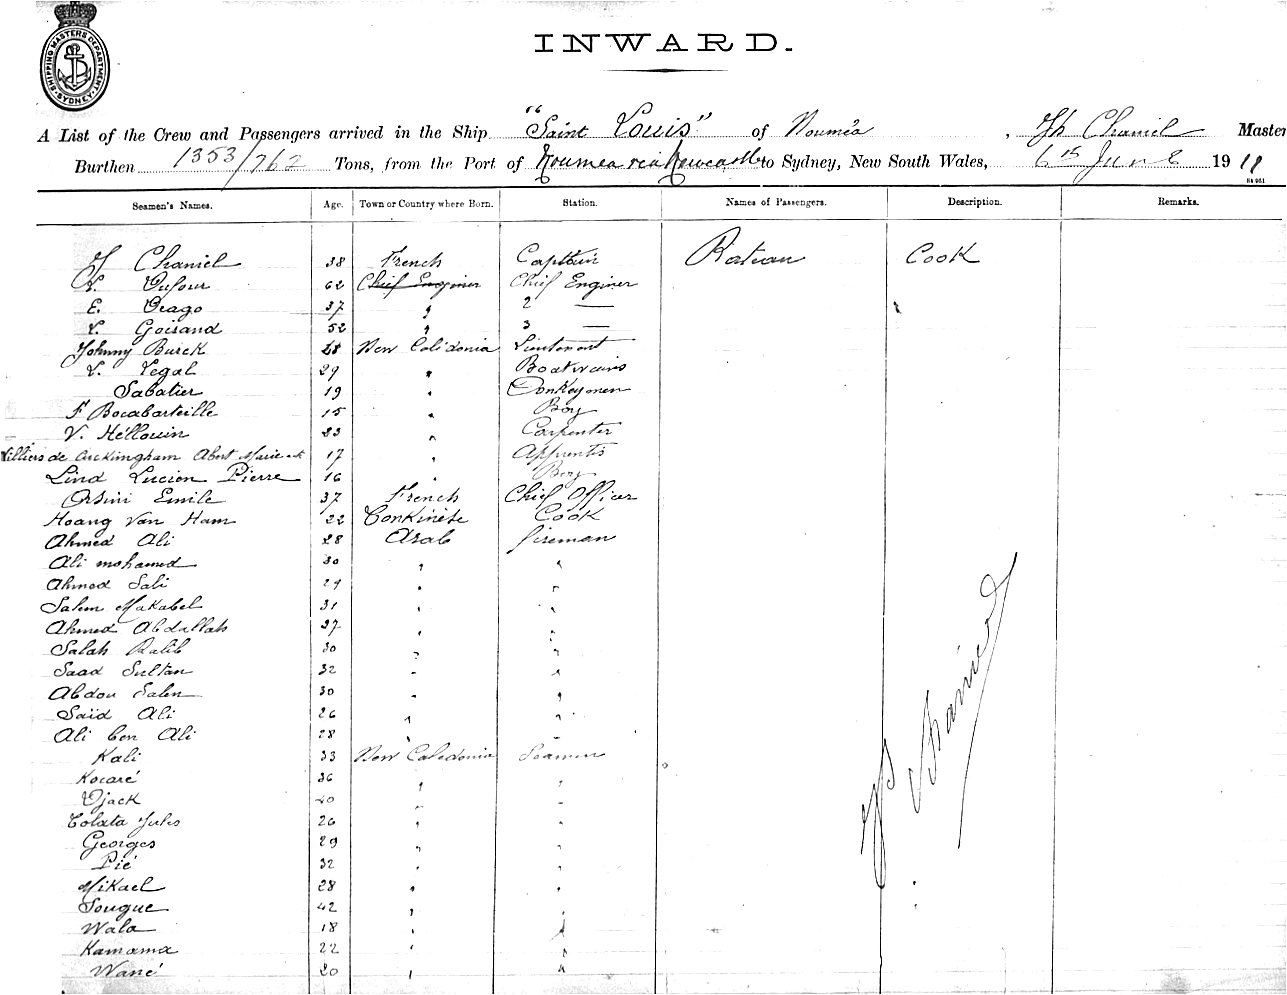 SHIPPING MASTERS DEPARTMENT SYDNEY
INWARD.
A List of the Crew and Passengers arrived in the Ship "Saint Louis" of Nouméa, Jh Chaniel Master
Burthen 1353/762 Tons, from the Port of Noumea via Newcastle to Sydney, New South Wales, 6th June 1911
Seamen's Names. Age. Town or Country where Born. Station. Names of Passengers. Description. Remarks.
J Chaniel 38 French Captain Rateau Cook
L. Dufour 62 Chief Enginer Chief Enginer
E. Drago 37 " 2 —
L. Goisand 52 " 3 —
Johnny Buick 28 New Calidonia Lieutenant
L. Legal 29 " Boatwains
Sabatier 19 " Donkeymen
F Bocabarteille 15 " Boy
V. Héllouin 23 " Carpenter
Villiers de Abert Marie 17 " Apprentis
Lind Lucien Pierre 16 " Boy
Orsini Emile 37 French Chief Officer
Hoang Van Ham 22 Tonkinése Cook
Ahmed Ali 28 Arab fireman
Ali mohamed 30 " "
Ahmed Sali 29 " "
Salem Makabel 31 " "
Ahmed Abdallah 27 " "
Salah Kalib 30 " "
Saad Sultan 32 " "
Abdou Salem 30 " "
Said Ali 26 " "
Ali ben Ali 28 " "
Kali 33 New Caledonia Seamen
Kocaré 36 " "
Djack 20 " "
Tolata Jules 26 " "
Georges 29 " "
Pié 32 " "
Mikael 28 " "
Sougue 42 " "
Wala 18 " "
Kamama 22 " "
Wané 20 " "
Jh Chaniel